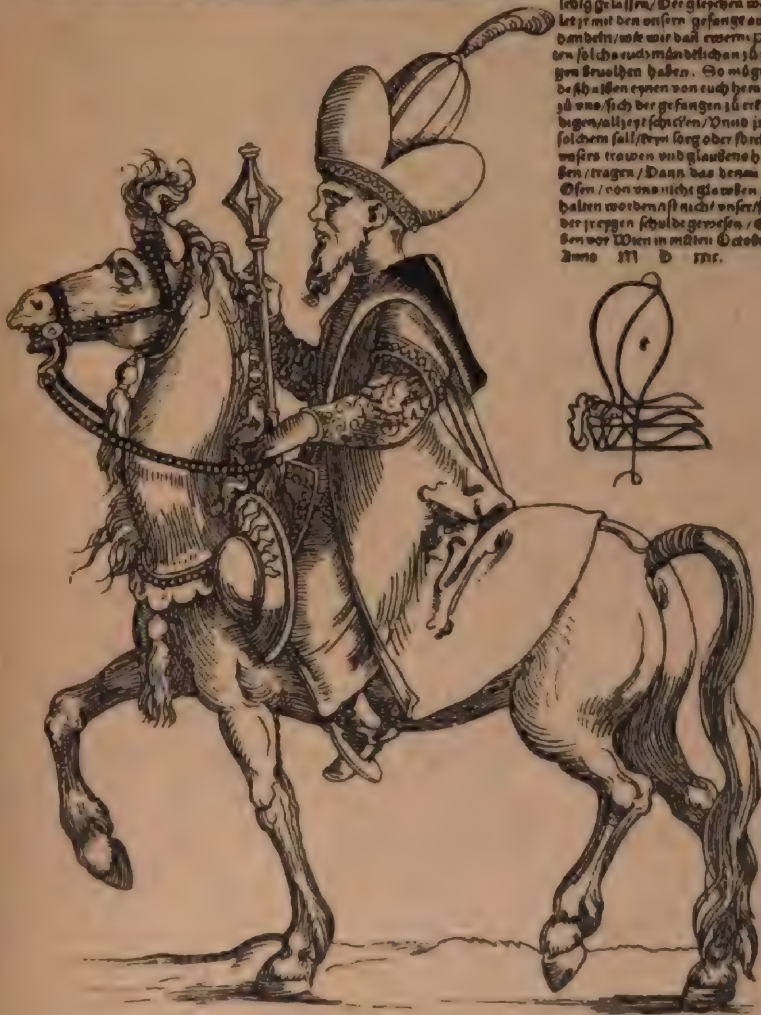 ledig gelassen/Der gleychen wö
let jr mit den vnsern gefange au
handeln/wie wir dañ ewerm P
ten solchs euch mündtlich an zů
gen beuolhen haben. So mügt
deßhalben eynen von euch hera
zů vns/sich der gefangen zů erk
digen/allzeyt schicken/Vnnd j
solchem fall/keyn sorg oder förch
vnsers trawen vnd glaubens h
ben/tragen/Dann das denen
Ofen/von vns nicht glawben
halten worden/ist nicht vnser/s
der jreygen schulde gewesen/G
ben vor Wien in mitten Octobe
Anno M D